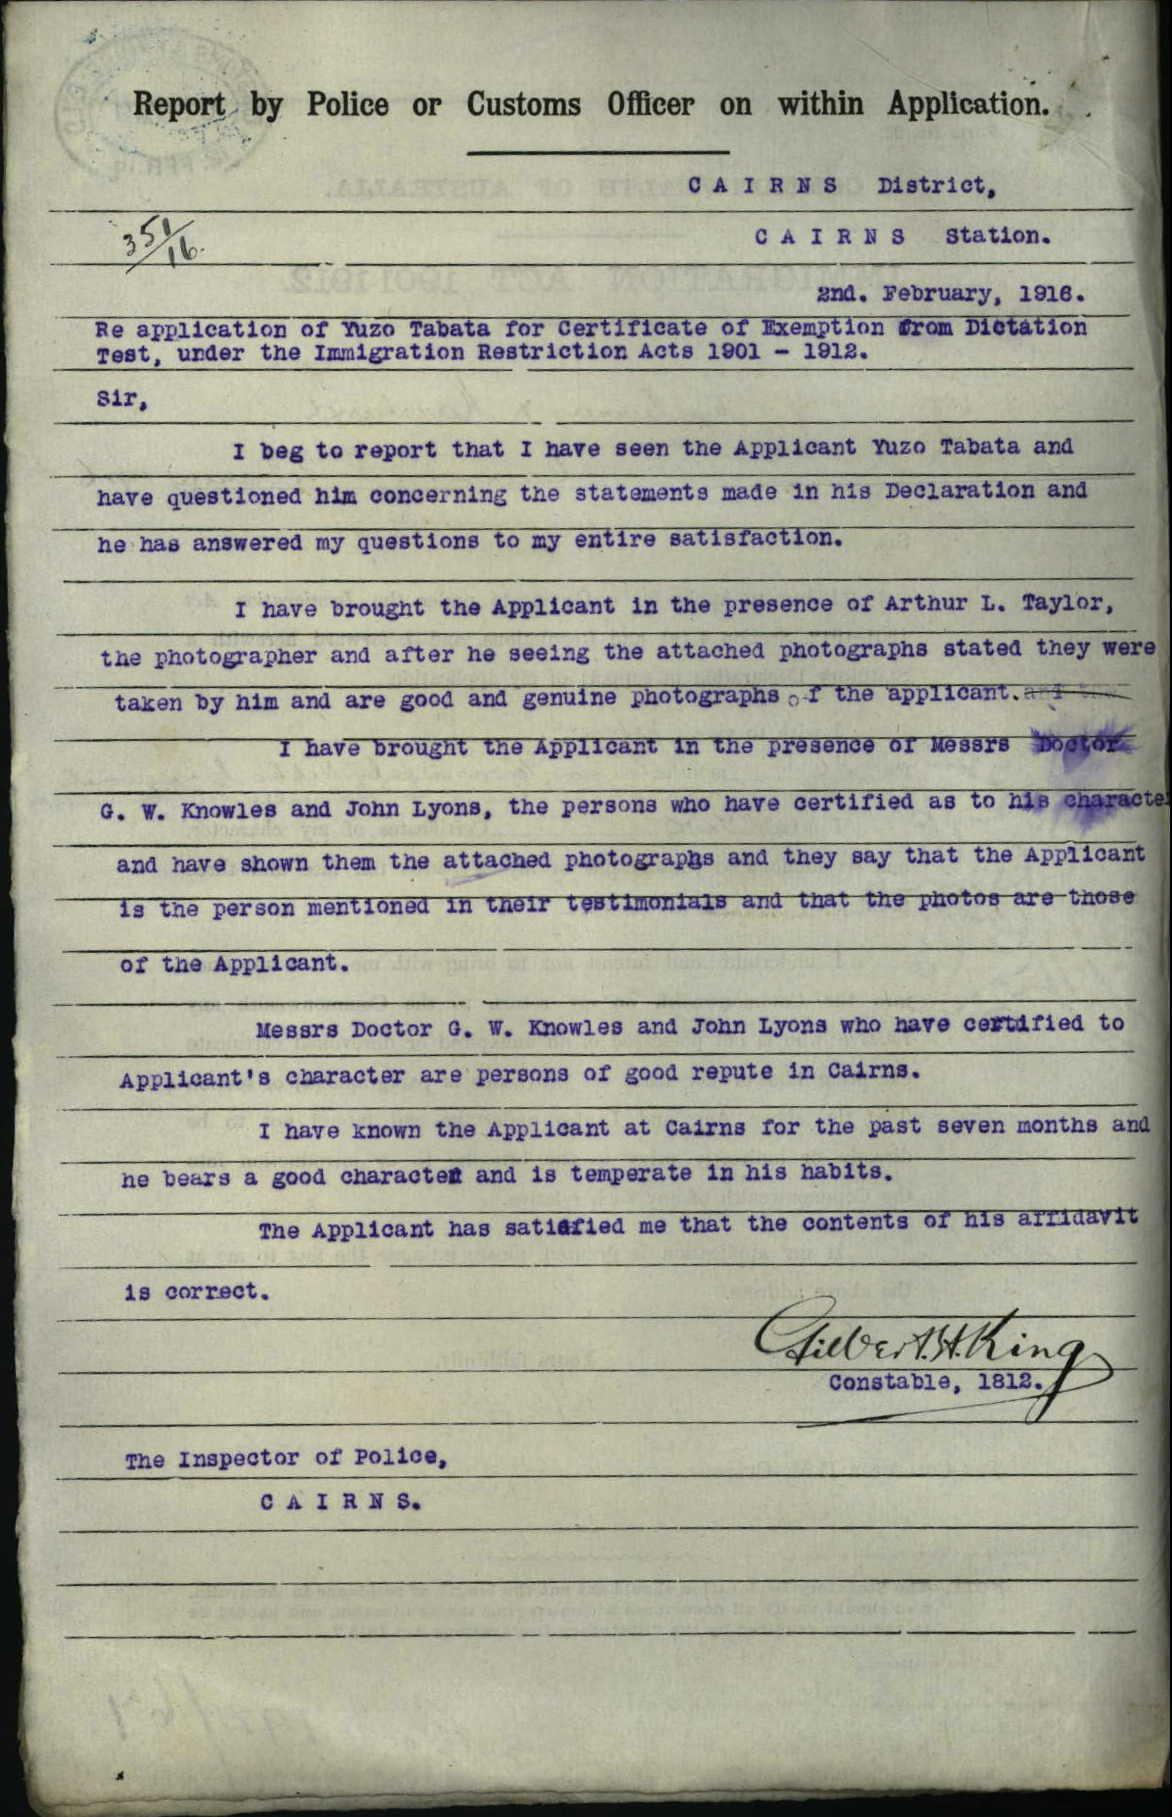 Report by Police or Customs Officer on within Application.
C A I R N S District,
351/16.
C A I R N S Station.
2nd. February, 1916.
Re application of Yuzo Tabata for Certificate of Exemption from Dictation
Test, under the Immigration Restriction Acts 1901 - 1912.
Sir,
I beg to report that I have seen the Applicant Yuzo Tabata and
have questioned him concerning the statements made in his Declaration and
he has answered my questions to my entire satisfaction.
I have brought the Applicant in the presence of Arthur L. Taylor,
the photographer and after he seeing the attached photographs stated they were
taken by him and are good and genuine photographs of the applicant.
I have brought the Applicant in the presence of Messrs Doctor
G. W. Knowles and John Lyons, the persons who have certified as to his character
and have shown them the attached photographs and they say that the Applicant
is the person mentioned in their testimonials and that the photos are those
of the Applicant.
Messrs Doctor G. W. Knowles and John Lyons who have certified to
Applicant's character are persons of good repute in Cairns.
I have known the Applicant at Cairns for the past seven months and
he bears a good character and is temperate in his habits.
The Applicant has satisfied me that the contents of his affidavit
is correct.
Gilbert.H.King
Constable, 1812.
The Inspector of Police,
C A I R N S.